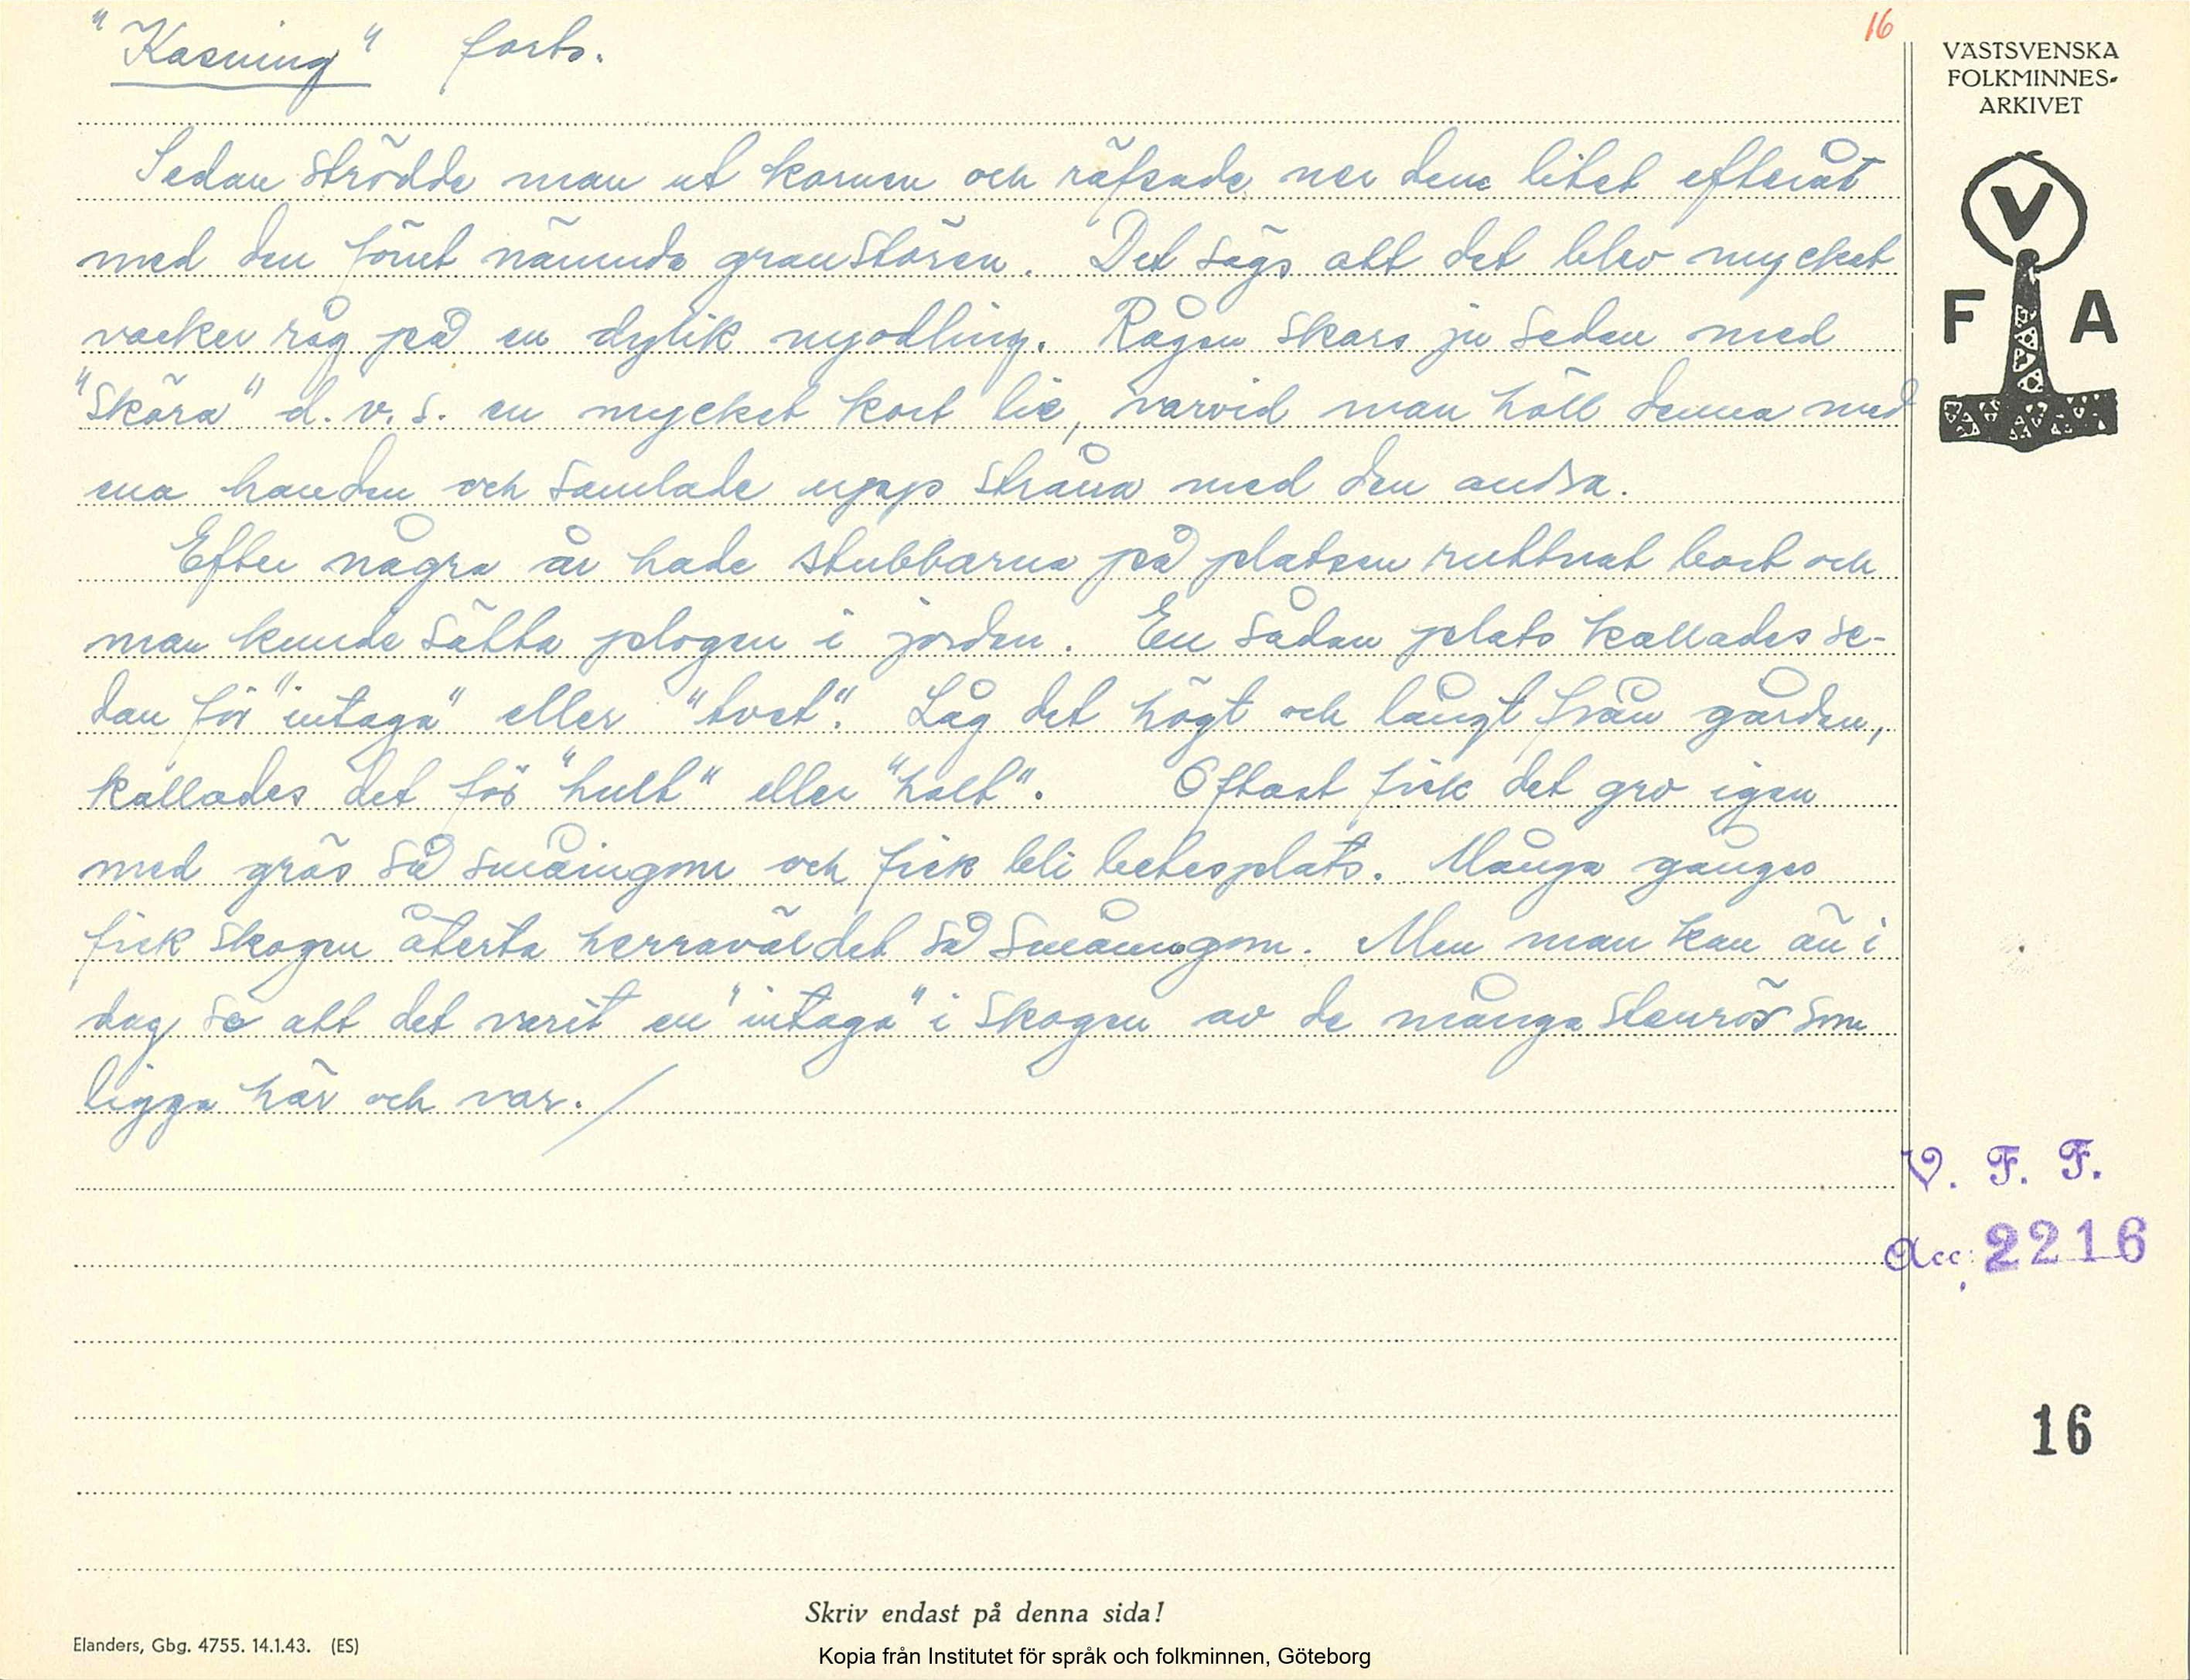 "Kasning" forts.
16
VÄSTSVENSKA
FOLKMINNES-
ARKIVET
V
F A
Sedan strödde man ut kornen och räfsade ner dem litet efteråt
med den förut nämnda granstören. Det sägs att det blev mycket
vacker råg på en dylik nyodling. Rågen skars ju sedan med
"skära" d.v.s. en mycket kort lie, varvid man höll denna med
ena handen och samlade upp stråna med den andra.
Efter några år hade stubbarna på platsen ruttnat bort och
man kunde sätta plogen i jorden. En sådan plats kallades se-
dan för "intaga" eller "tvet". Låg det högt och långt från gården,
kallades det för "hult" eller "holt". Oftast fick det gro igen
med gräs så småningom och fick bli betesplats. Många gånger
fick skogen återta herraväldet så småningom. Men man kan än i
dag se att det varit en "intaga" i skogen av de många stenrös som
ligga här och var. /
V. F. F.
Acc: 2216
16
Skriv endast på denna sida!
Elanders, Gbg. 4755. 14.1.43. (ES)
Kopia från Institutet för språk och folkminnen, Göteborg